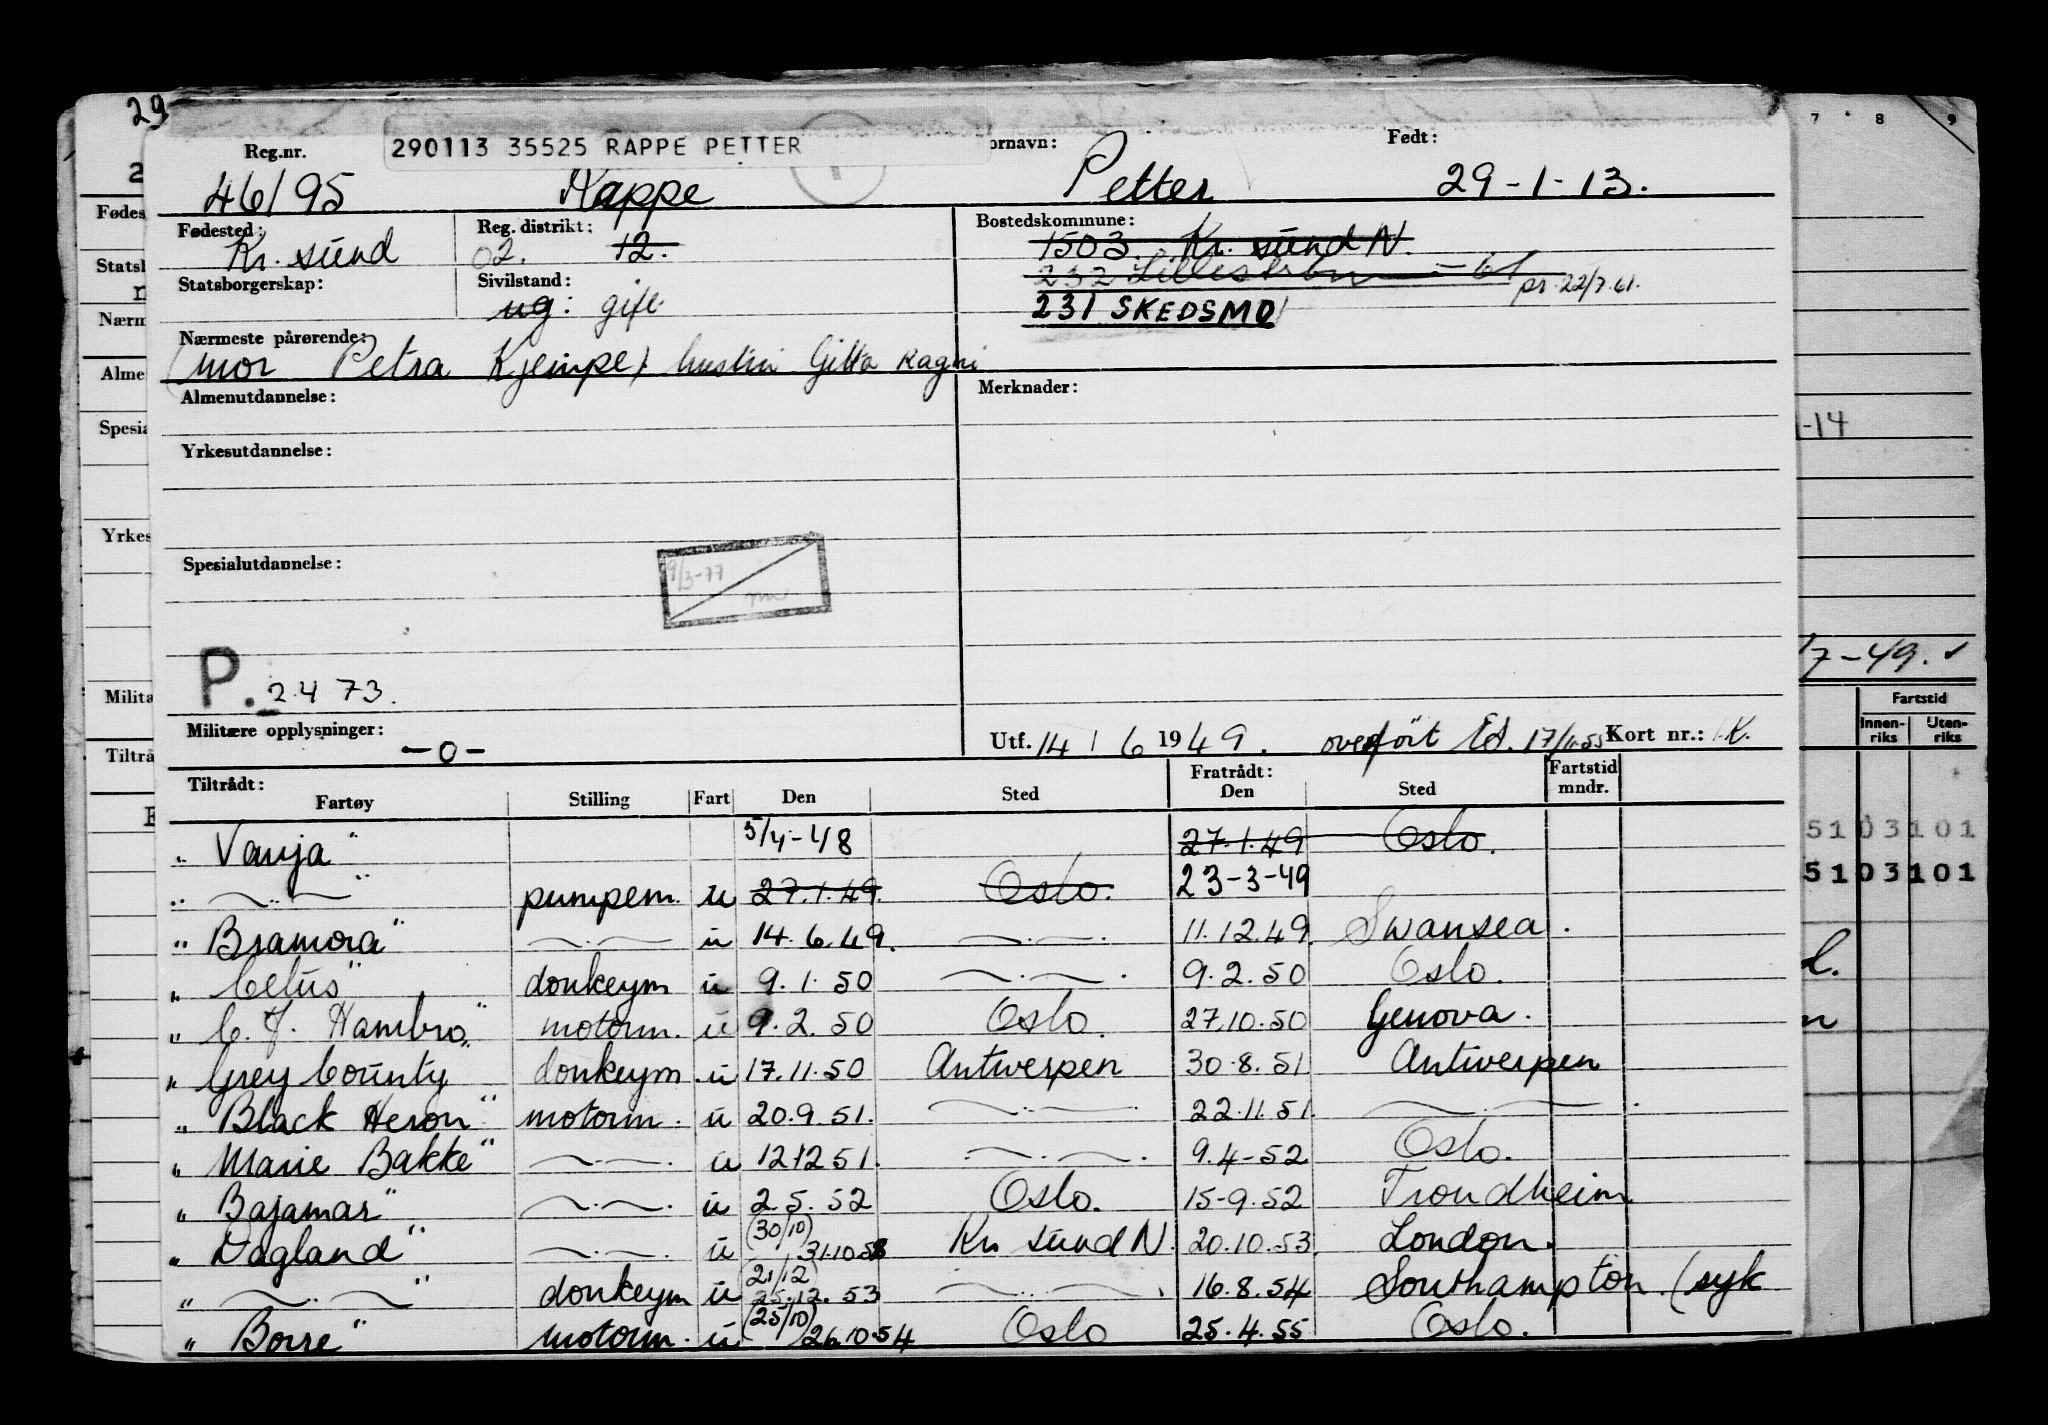 29
290113 35525 RAPPE PETTER
Reg.nr. ornavn: Født:
46195 Rappe Petter 29-1-13.
Fødested: Reg. distrikt: Bostedskommune:
Kr. sund 02. 12. 1503. Kr. sund N.
232 Lillestrøm - 61 pr. 22/7.61.
Statsborgerskap: Sivilstand:
ug: gift. 231 SKEDSMO
Nærmeste pårørende:
(mor Petra Kjempe) hustru Gitta Ragni
Almenutdannelse: Merknader:
Yrkesutdannelse:
Spesialutdannelse:
9/3-77
P. 2473.
Militære opplysninger: -0- Utf. 14 / 6 1949. overført 17/11.55 Kort nr.: K.
Tiltrådt: Fratrådt: Fartstid
Fartøy Stilling Fart Den Sted Den Sted mndr.
„ Vanja" 5/4-48 27.1.49 Oslo.
„ —..— " pumpem. u 27.1.49. Oslo. 23-3-49
„ Bramora" —.— u 14.6.49. —.— 11.12.49. Swansea.
„ Cetus" donkeym u 9.1.50 —.— 9.2.50 Oslo.
„ C. J. Hambro" motorm. u 9.2.50 Oslo. 27.10.50 Genova.
„ Grey County donkeym. u 17.11.50 Antwerpen 30.8.51 Antwerpen
„ Black Heron" motorm. u 20.9.51. —.— 22.11.51. —.—
„ Marie Bakke" —.— u 12.12 51. —.— 9.4-52 Oslo.
„ Bajamar" —.— u 2.5.52 Oslo. 15-9.52 Trondheim
„ Dagland" —.— u (30/10) 31.10.58 Kr. sund N. 20.10.53. London.
„ —..— " donkeym u (21/12) 25.12.53 —.— 16.8.54 Southampton. (syk
„ Borre" motorm. u (25/10) 26.10.54 Oslo 25.4.55 Oslo.
7 8 9
-14
/7-49. ✓
Fartstid
Innen-riks Uten-riks
51 03101
51 03101